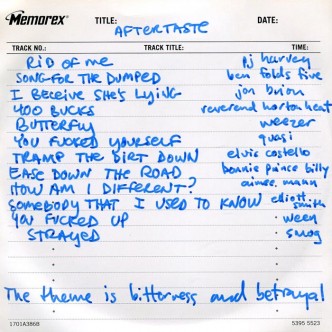 Memorex TITLE: DATE:
AFTERTASTE
TRACK NO.: TRACK TITLE: TIME:
RID OF ME pj harvey
SONG FOR THE DUMPED ben folds five
I BELIEVE SHE'S LYING jon brion
400 BUCKS reverend horton heat
BUTTERFLY weezer
YOU FUCKED YOURSELF quasi
TRAMP THE DIRT DOWN elvis costello
EASE DOWN THE ROAD bonnie prince billy
HOW AM I DIFFERENT? aimee mann
SOMEBODY THAT I USED TO KNOW elliott smith
YOU FUCKED UP ween
STRAYED smog
The theme is bitterness and betrayal
1701A3868 5395 5523